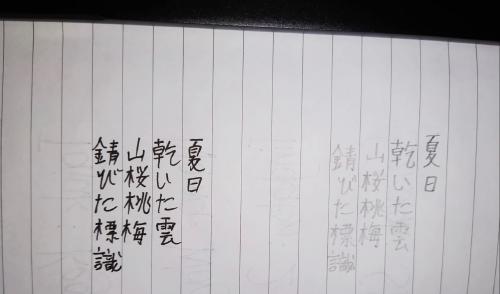 夏日
乾いた雲
山桜桃梅
錆びた標識
夏日
乾いた雲
山桜桃梅
錆びた標識